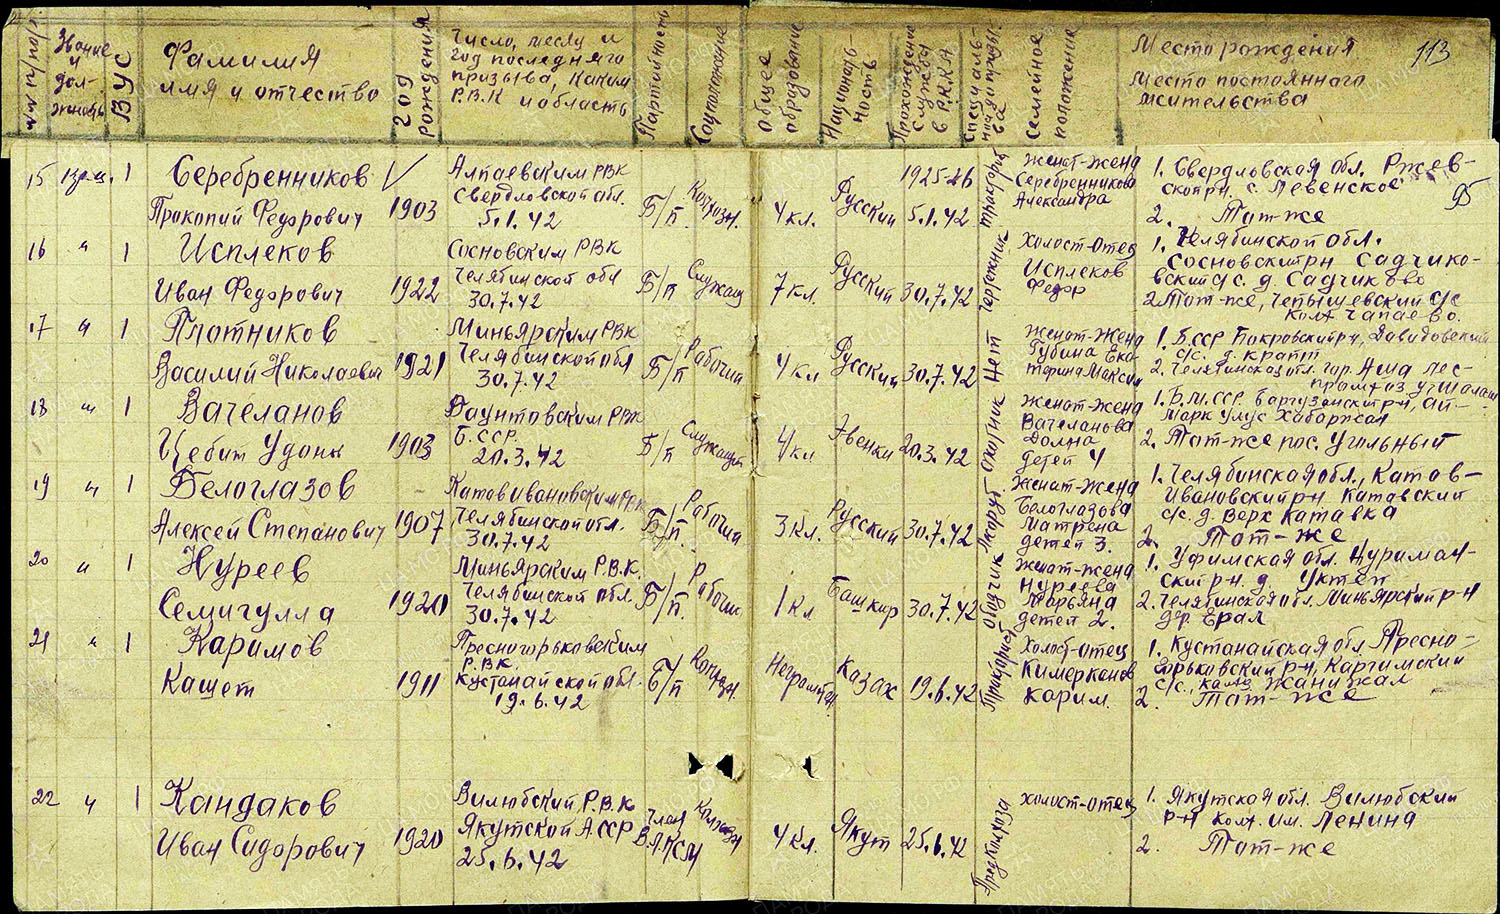 №№ п/пор.
Звание и должность
ВУС
Фамилия
имя и отчество
Год рождения
Число, месяц и
год последнего
призыва, каким
Р.В.К и область
Партийность
Соцположение
Общее образование
Национальность
Прохождение службы в Р.К.К.А
Семейное положение
Место рождения
Место постоянного
жительства
113
15 1 Серебренников
Прокопий Федорович 1903
Алпаевским РВК
Свердловской обл.
5.1.42
Б/п Колхозн. 4 кл. Русский
1925-26
5.1.42
тракторист
женат-жена
Серебренникова
Александра
1. Свердловская обл. Ржев-
ской рн. с. Левенское
2. Там-же
95
16 " 1 Исплеков
Иван Федорович 1922
Сосновским РВК
Челябинской обл
30.7.42
Б/п Служащ 7 кл. Русский 30.7.42
Чертежник
Холост-отец
Исплеков
Федор
1. Челябинской обл.
Сосновский рн Садчико-
вский с/с д. Садчиково
2. Там-же, с/с
колх Чапаево.
17 " 1 Плотников
Василий Николаевич 1921
Миньярским РВК
Челябинской обл
30.7.42
Б/п Рабочий 4 кл Русский 30.7.42
Нет
женат-жена
Губина Ека-
терина Максим
1. БССР Покровский рн, Давидовский
с/с. д.
2. Челябинская обл. гор. Аша лес-
18 " 1 Вачеланов
1903
Баунтовским РВК
Б.ССР.
20.3.42
Б/п Служащий 4 кл Эвенки 20.3.42
охотник
женат-жена
Вачеланова
детей 4
1. Б.М.ССР. Баргузинский р-н, ай-
мак Улус
2. Там-же пос. Угольный
19 " 1 Белоглазов
Алексей Степанович 1907
Катавивановским РВК
Челябинской обл.
30.7.42
Б/п. Рабочий 3 кл. Русский 30.7.42
Лесоруб
женат-жена
Белоглазова
Матрена
детей 3.
1. Челябинская обл., Катав-
Ивановский р-н Катавский
с/с. д. Верх Катавка
2. Там-же
20 " 1 Нуреев
Семигулла 1920
Миньярским Р.В.К.
Челябинской обл.
30.7.42
Б/п. Рабочий 1 кл Башкир 30.7.42
женат-жена
Нуреева
Марьяна
детей 2.
1. Уфимская обл.
ский рн. д.
2. Челябинская обл. Миньярский р-н
дер. Ерал
21 " 1 Каримов
Кашет 1911
Пресногорьковским
Р.В.К.
Кустанайской обл.
19.6.42
Б/п Колхозн. Неграмотен Казах 19.6.42
Тракторист
Холост-отец
Кимерканов
Карим.
1. Кустанайская обл Пресно-
горьковский р-н,
с/с., колхоз
2. Там-же
22 " 1 Кандаков
Иван Сидорович 1920
Вилюбский Р.В.К
Якутской А.ССР
25.6.42
член
В.Л.КСМ
Колхозн 4 кл. Якут 25.6.42
Пред колхоза
холост-отец
1. Якутская обл. Вилюбский
р-н колх. им. Ленина
2. Там-же